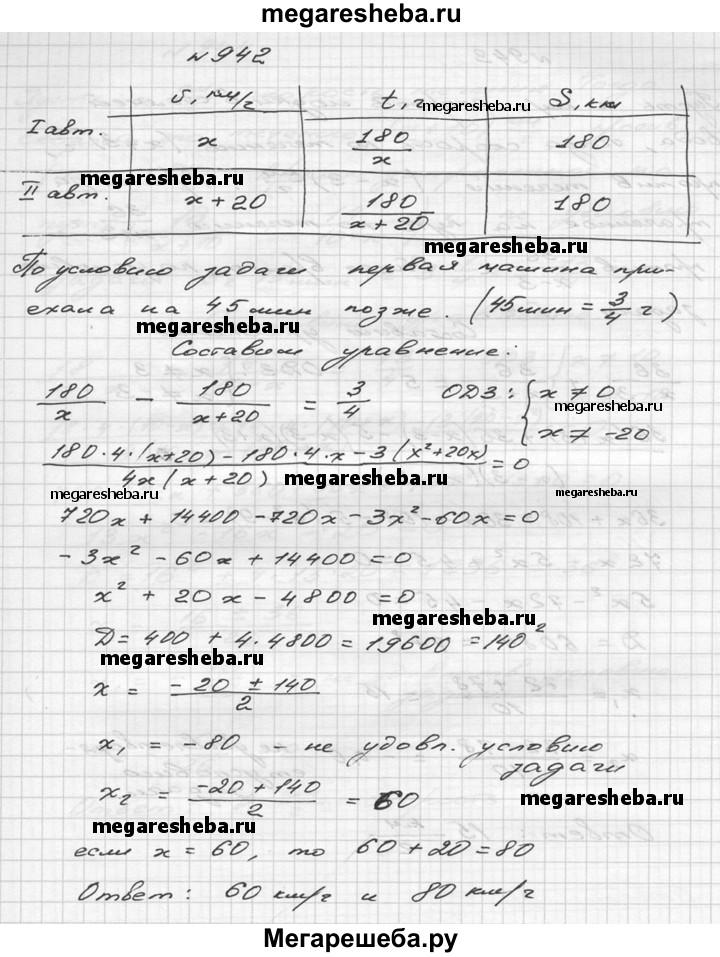 megaresheba.ru
№942
v, км/ч t, ч S, км
megaresheba.ru
I авт. x 180/x 180
megaresheba.ru
II авт. x + 20 180/(x + 20) 180
megaresheba.ru
По условию задачи первая машина при-
ехала на 45 мин позже. (45 мин = 3/4 ч)
megaresheba.ru
Составим уравнение:
180/x - 180/(x+20) = 3/4 ОДЗ: { x ≠ 0
megaresheba.ru
x ≠ -20
(180·4·(x+20) - 180·4·x - 3(x²+20x))/(4x(x+20)) = 0
megaresheba.ru
megaresheba.ru megaresheba.ru
720x + 14400 - 720x - 3x² - 60x = 0
- 3x² - 60x + 14400 = 0
x² + 20x - 4800 = 0
megaresheba.ru
D = 400 + 4·4800 = 19600 = 140²
megaresheba.ru
x = (-20 ± 140)/2
x₁ = -80 - не удовл. условию
задачи
x₂ = (-20 + 140)/2 = 60
megaresheba.ru
megaresheba.ru
если x = 60, то 60 + 20 = 80
Ответ: 60 км/ч и 80 км/ч
Мегарешеба.ру